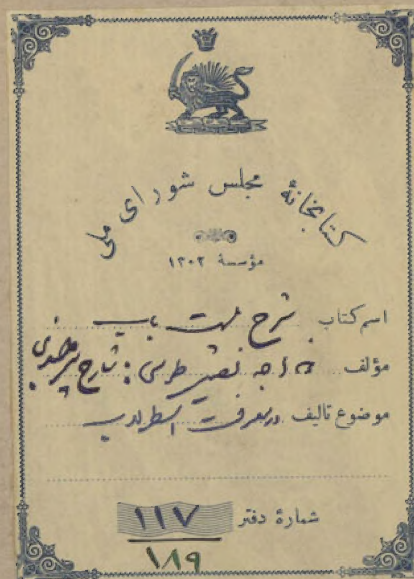 کتابخانهٔ مجلس شورای ملی
مؤسسهٔ ۱۳۰۲
اسم کتاب شرح بیست باب
مؤلف خواجه نصیر طوسی: شارح بیرجندی
موضوع تالیف در معرفت اسطرلاب
شمارهٔ دفتر ۱۱۷
۱۸۹